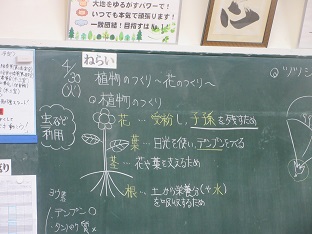 大地をゆるがすパワーで!
いつでも本気で頑張ります!
一致団結!目指すは
ねらい
4/30
(火)
植物のつくり〜花のつくり〜
植物のつくり
虫など
利用
花…受粉し、子孫を残すため
葉…日光で使い、デンプンをつくる
茎…花や葉を支えるため
根…土から栄養分(や水)
を吸収するため
ヨウ素
デンプン○
タンパク質×